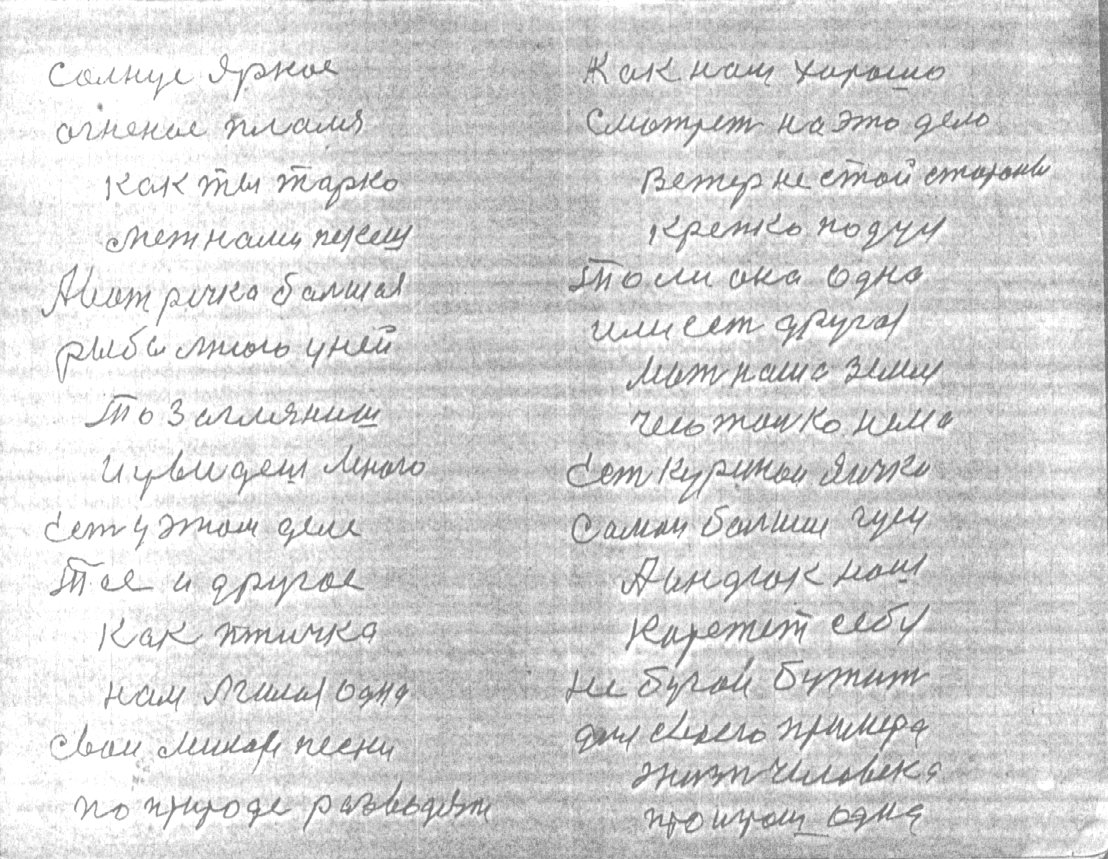 Солнце яркое
огненое пламя
как ты жарко
меж нами печеш
А вот речка балшая
рыбы много у ней
То загляниш
и увидеш много
Сет у этом деле
Тое и другое
Как птичка
нам милая одна
свои милые песни
по природе разводит
Как наш хорошо
Смотрет на это дело
Ветер не стой стороны
крепко подул
То ли она одна
или сет другая
Мат наша земля
чего толко нема
Сет куриной яичко
Самои балшии гуси
А индюк наш
Карежет себя
не бугай бужит
для своего примера
жизн человека
одна